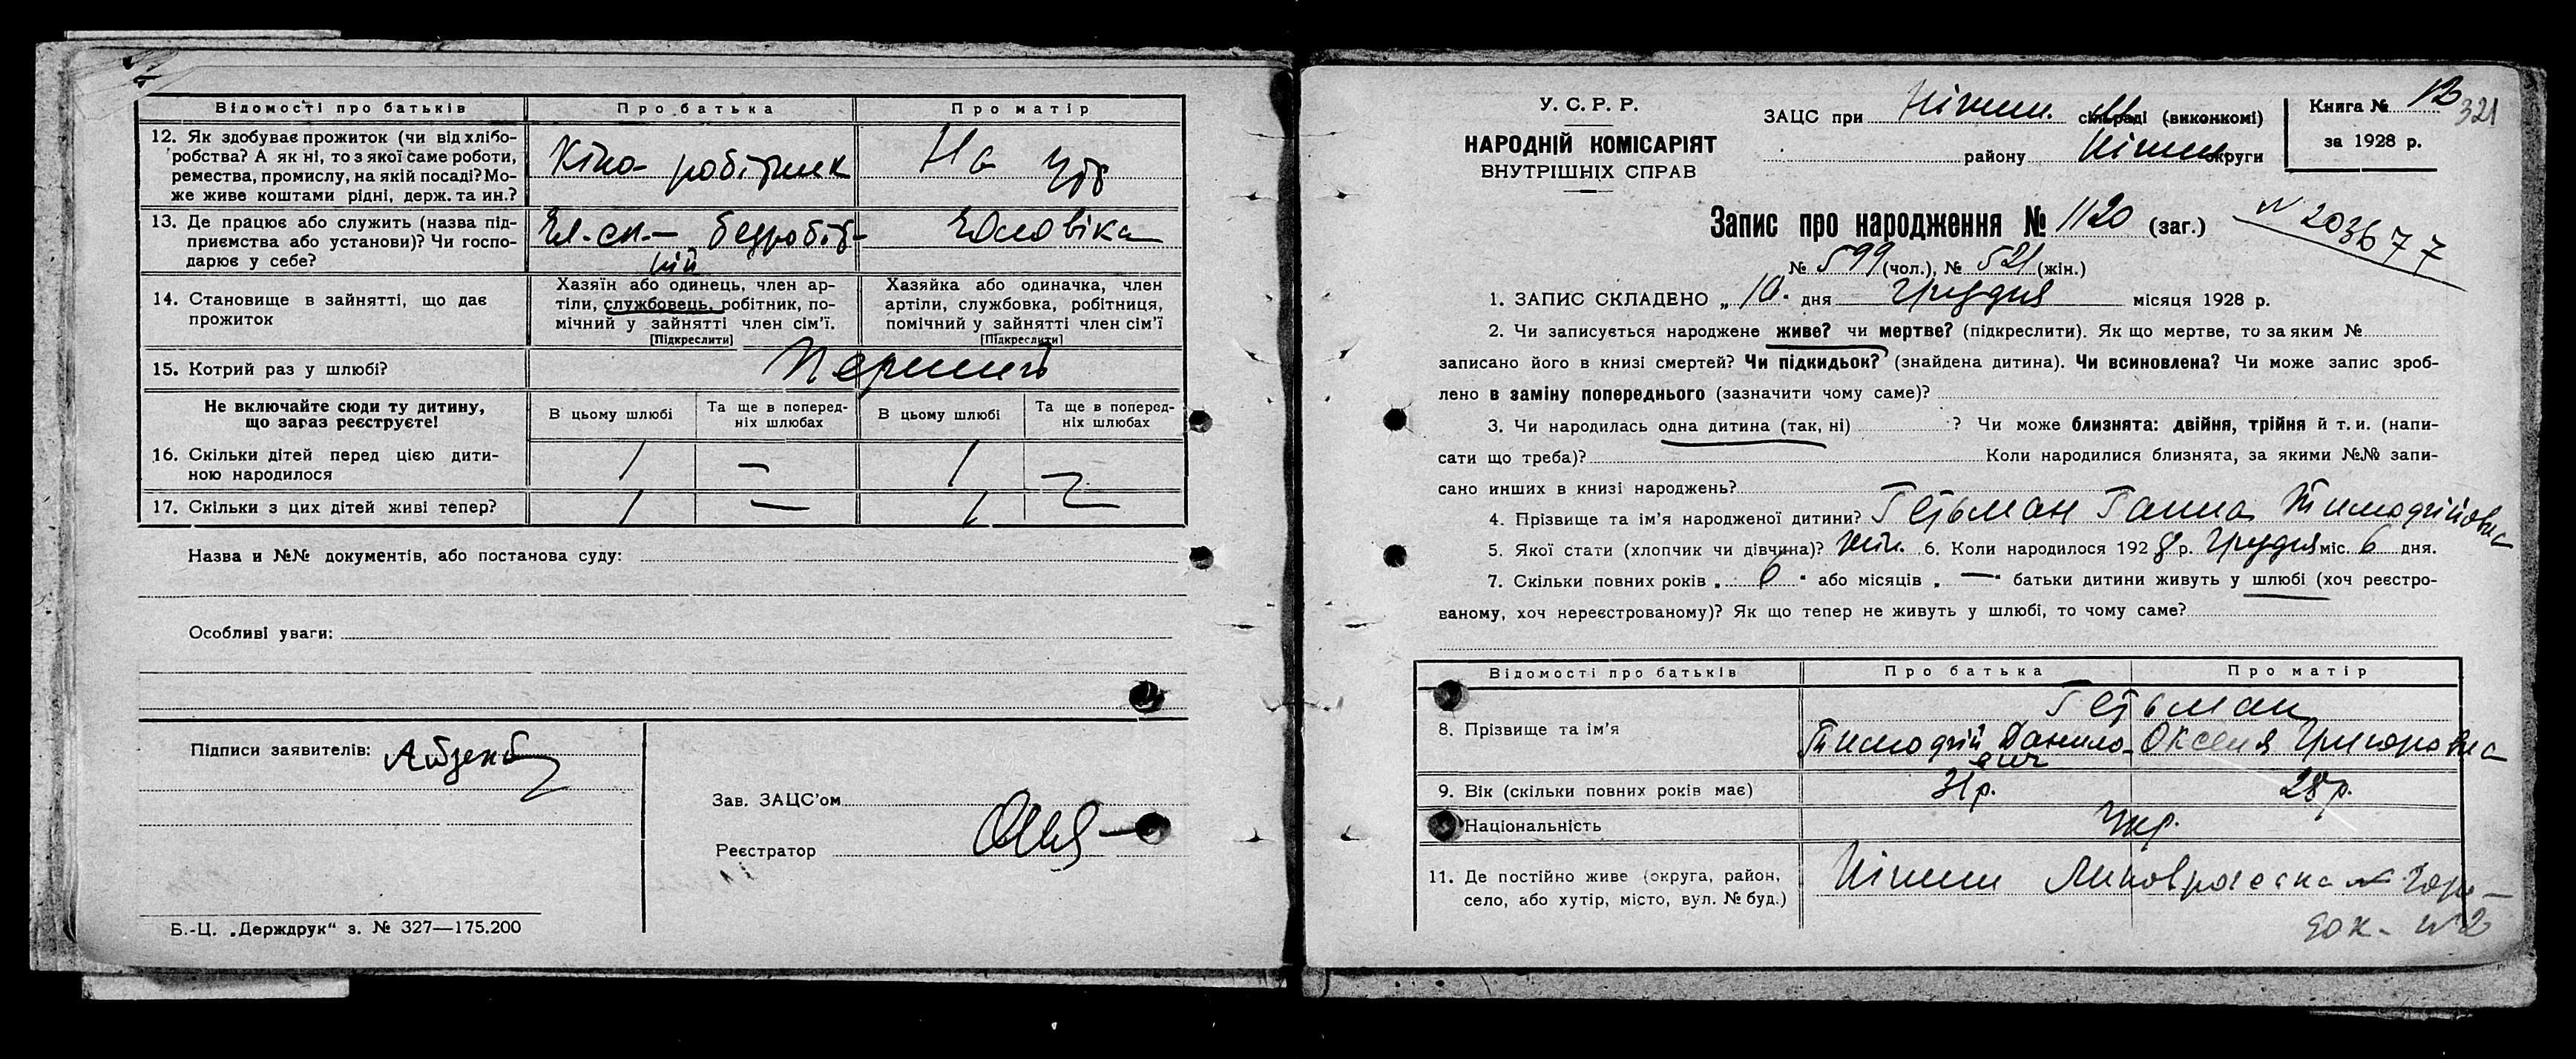 Відомості про батьків Про батька Про матір
12. Як здобуває прожиток (чи від хлібо-
робства? А як ні, то з якої саме роботи,
ремества, промислу, на якій посаді? Мо-
же живе коштами рідні, держ. та ин.?
Кіно-робітник На утр
13. Де працює або служить (назва під-
приємства або установи)? Чи госпо-
дарює у себе?
безробіт-
ній
чоловіка
14. Становище в зайнятті, що дає
прожиток
Хазяїн або одинець, член ар-
тілі, службовець, робітник, по-
мічний у зайнятті член сім'ї.
[Підкреслити]
Хазяйка або одиначка, член
артілі, службовка, робітниця,
помічний у зайнятті член сім'ї
[Підкреслити]
15. Котрий раз у шлюбі? Перший
Не включайте сюди ту дитину,
що зараз реєструєте!
В цьому шлюбі
Та ще в поперед-
ніх шлюбах
В цьому шлюбі
Та ще в поперед-
ніх шлюбах
16. Скільки дітей перед цією дити-
ною народилося
1 — 1 —
17. Скільки з цих дітей живі тепер? 1 — 1 —
Назва и №№ документів, або постанова суду:
Особливі уваги:
Підписи заявителів:
Зав. ЗАЦС'ом
Реєстратор
Б.-Ц. „Держдрук“ з. № 327—175.200
У. С. Р. Р.
НАРОДНІЙ КОМІСАРІЯТ
ВНУТРІШНІХ СПРАВ
ЗАЦС при Ніжин. сільраді (виконкомі)
району Ніжин округи
Книга № 12
за 1928 р.
321
Запис про народження № 1120 (заг.)
№ 203677
№ 599 (чол.), № 521 (жін.)
1. ЗАПИС СКЛАДЕНО „ 10. дня Грудня місяця 1928 р.
2. Чи записується народжене живе? чи мертве? (підкреслити). Як що мертве, то за яким №
записано його в книзі смертей? Чи підкидьок? (знайдена дитина). Чи всиновлена? Чи може запис зроб-
лено в заміну попереднього (зазначити чому саме)?
3. Чи народилась одна дитина (так, ні) ? Чи може близнята: двійня, трійня й т. и. (напи-
сати що треба)? Коли народилися близнята, за якими №№ запи-
сано инших в книзі народжень?
4. Прізвище та ім'я народженої дитини? Гетьман Ганна Тимофіївна
5. Якої стати (хлопчик чи дівчина)? жін. 6. Коли народилося 1928 р. Грудня міс. 6 дня.
7. Скільки повних років „ 6 “ або місяців „ — “ батьки дитини живуть у шлюбі (хоч реєстро-
ваному, хоч нереєстрованому)? Як що тепер не живуть у шлюбі, то чому саме?
Відомості про батьків Про батька Про матір
8. Прізвище та ім'я
Гетьман
Тимофій Данило-
вич
Оксенія Григоровна
9. Вік (скільки повних років має) 31 р. 28 р.
Національність Укр.
11. Де постійно живе (округа, район,
село, або хутір, місто, вул. № буд.)
Ніжин
док. № 2